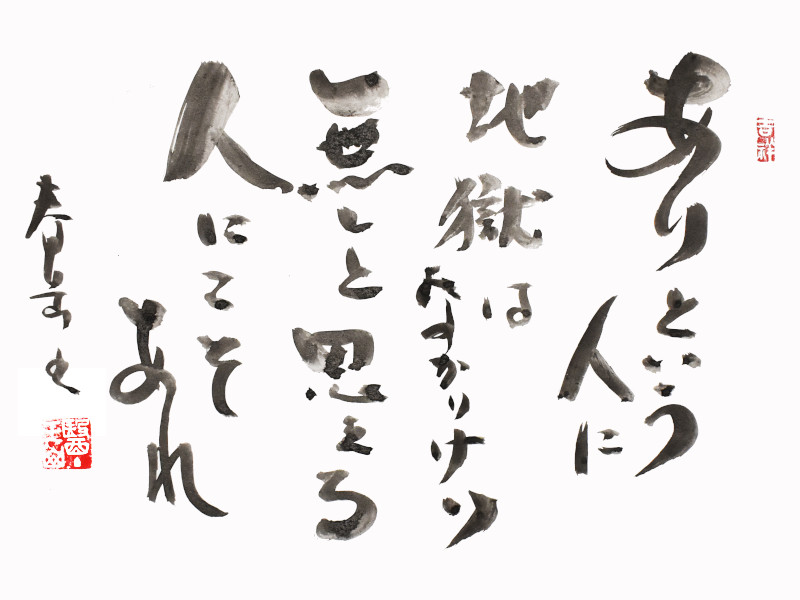 吉祥
ありという
人に
地獄は
なかりけり
無しと思える
人にこそ
あれ